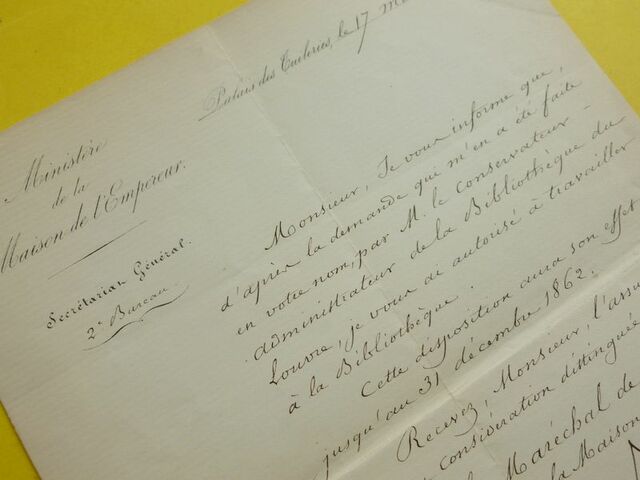 Palais des Tuileries, le 17
Ministère
de la
Maison de l'Empereur.
Secrétariat Général.
2e Bureau.
Monsieur, Je vous informe que,
d'après la demande que m'en a été faite
en votre nom, par M. le Conservateur-
administrateur de la Bibliothèque du
Louvre, je vous ai autorisé à travailler
à la Bibliothèque.
Cette disposition aura son effet
jusqu'au 31 décembre 1862.
Recevez, Monsieur, l'assu
considération distinguée
Maréchal de
la Maison